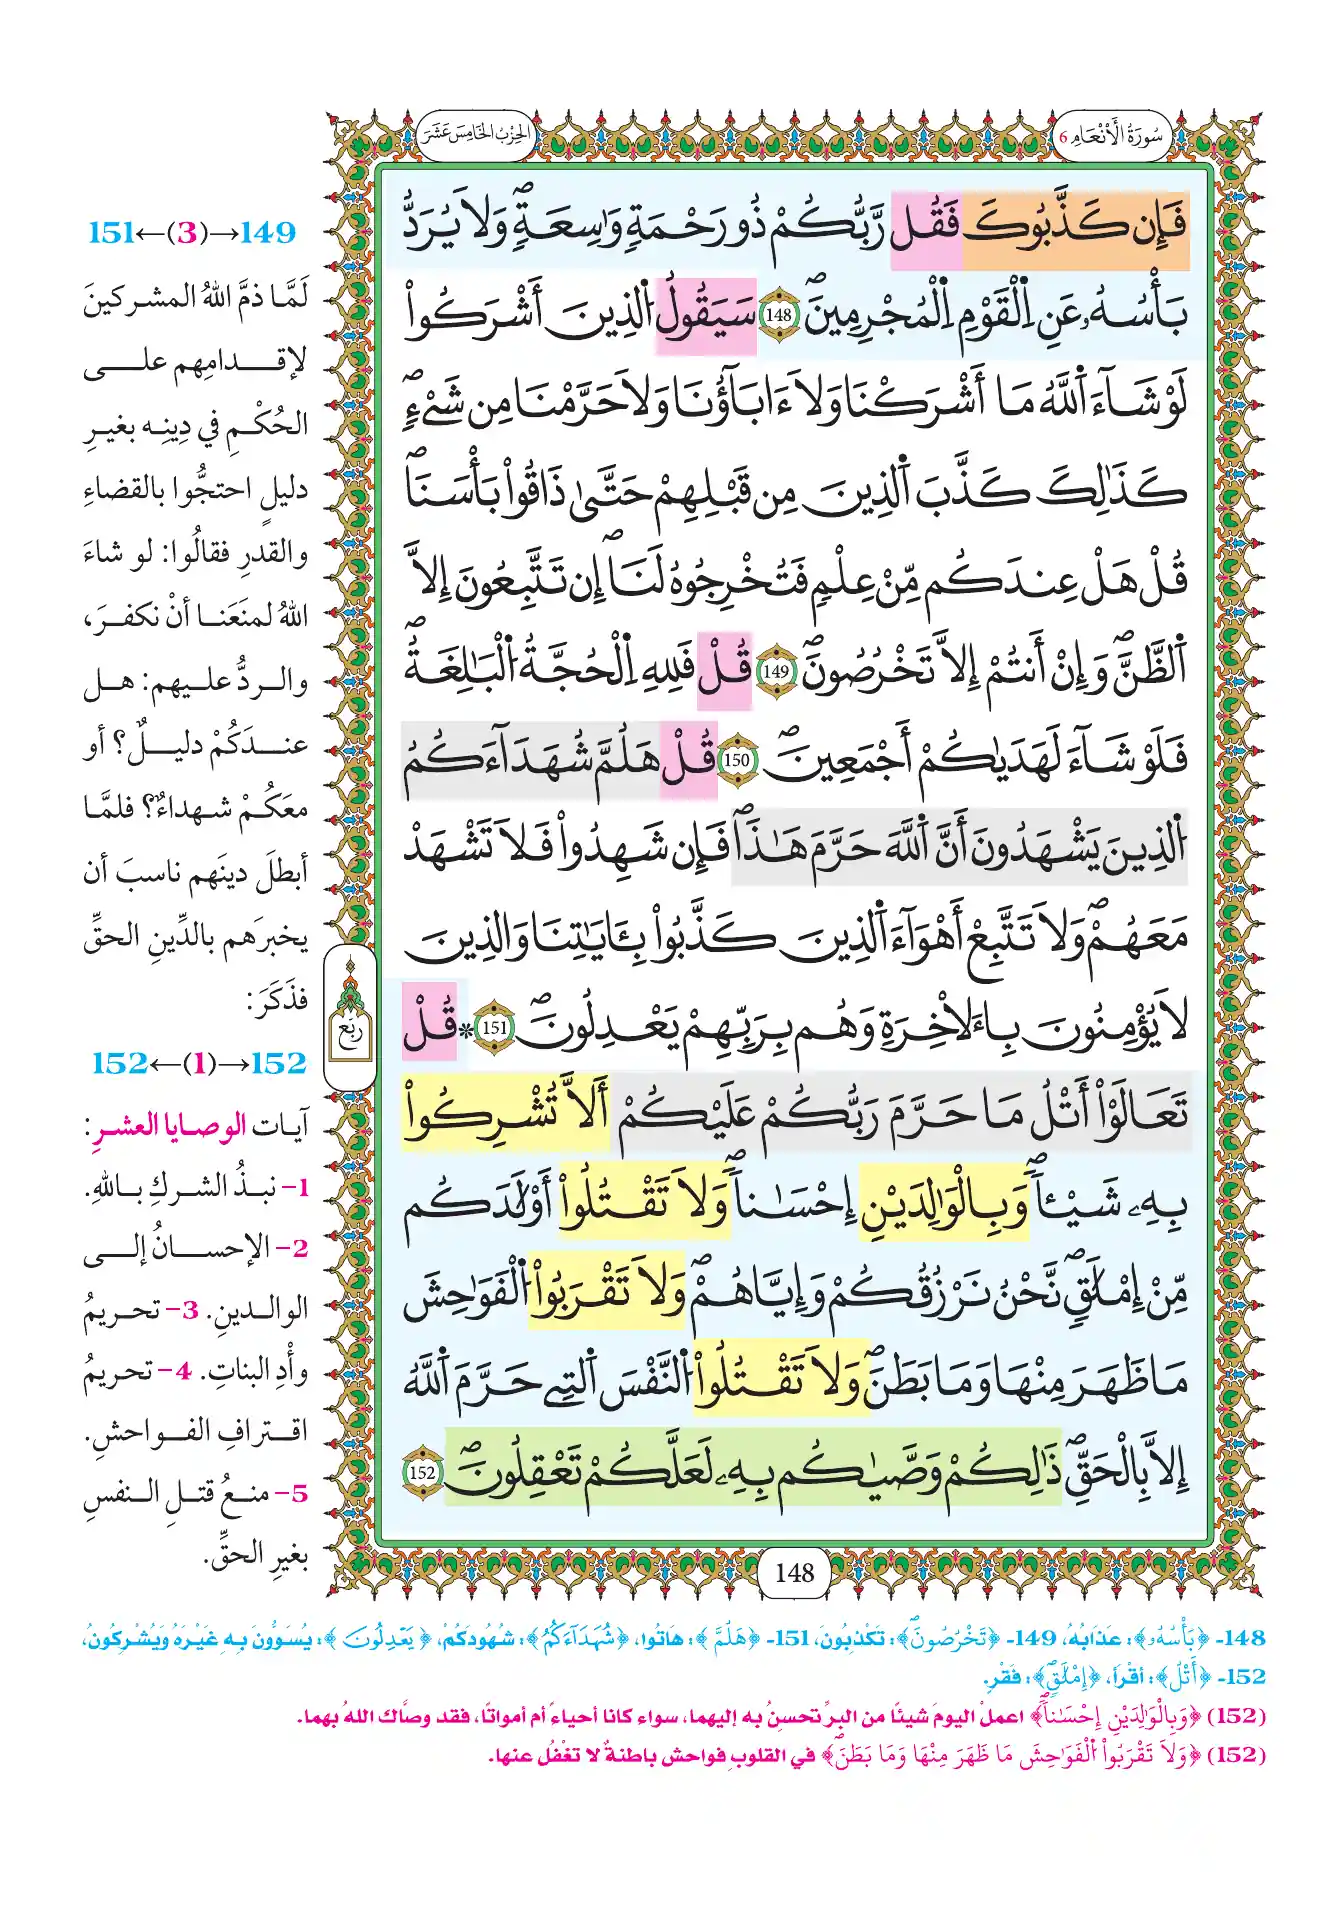 سُورَةُ الْأَنْعَامِ 6
الحِزْبُ الخَامِسَ عَشَرَ
فَإِن كَذَّبُوكَ فَقُل رَّبُّكُمْ ذُو رَحْمَةٍ وَٰسِعَةٍۖ وَلَا يُرَدُّ
بَأْسُهُۥ عَنِ اِ۬لْقَوْمِ اِ۬لْمُجْرِمِينَۖ 148 سَيَقُولُ اُ۬لذِينَ أَشْرَكُواْ
لَوْ شَآءَ اَ۬للَّهُ مَا أَشْرَكْنَا وَلَا ءَابَآؤُنَا وَلَا حَرَّمْنَا مِن شَےْءٍۖ
كَذَٰلِكَ كَذَّبَ اَ۬لذِينَ مِن قَبْلِهِمْ حَتَّىٰ ذَاقُواْ بَأْسَنَاۖ
قُلْ هَلْ عِندَكُم مِّنْ عِلْمٖ فَتُخْرِجُوهُ لَنَاۖ إِن تَتَّبِعُونَ إِلَّا
اَ۬لظَّنَّۖ وَإِنْ أَنتُمْ إِلَّا تَخْرُصُونَۖ 149 قُلْ فَلِلهِ اِ۬لْحُجَّةُ اُ۬لْبَٰلِغَةُۖ
فَلَوْ شَآءَ لَهَدَيٰكُمْ أَجْمَعِينَۖ 150 قُلْ هَلُمَّ شُهَدَآءَكُمُ
اُ۬لذِينَ يَشْهَدُونَ أَنَّ اَ۬للَّهَ حَرَّمَ هَٰذَاۖ فَإِن شَهِدُواْ فَلَا تَشْهَدْ
مَعَهُمْۖ وَلَا تَتَّبِعْ أَهْوَآءَ اَ۬لذِينَ كَذَّبُواْ بِـَٔايَٰتِنَا وَالذِينَ
لَا يُؤْمِنُونَ بِالَاخِرَةِ وَهُم بِرَبِّهِمْ يَعْدِلُونَۖ 151 * قُلْ
تَعَالَوْاْ أَتْلُ مَا حَرَّمَ رَبُّكُمْ عَلَيْكُمْ أَلَّا تُشْرِكُواْ
بِهِۦ شَيْـٔاٗۖ وَبِالْوَٰلِدَيْنِ إِحْسَٰناٗۖ وَلَا تَقْتُلُواْ أَوْلَٰدَكُم
مِّنْ إِمْلَٰقٖۖ نَّحْنُ نَرْزُقُكُمْ وَإِيَّاهُمْۖ وَلَا تَقْرَبُواْ اُ۬لْفَوَٰحِشَ
مَا ظَهَرَ مِنْهَا وَمَا بَطَنَۖ وَلَا تَقْتُلُواْ اُ۬لنَّفْسَ اَ۬لتِے حَرَّمَ اَ۬للَّهُ
إِلَّا بِالْحَقِّۖ ذَٰلِكُمْ وَصَّيٰكُم بِهِۦ لَعَلَّكُمْ تَعْقِلُونَۖ 152
148
149→(3)←151
لَمَّا ذمَّ اللهُ المشركينَ
لإقدامِهم على
الحُكْمِ في دِينِه بغيرِ
دليلٍ احتجُّوا بالقضاءِ
والقدرِ فقالُوا: لو شاءَ
اللهُ لمنَعَنا أنْ نكفرَ،
والردُّ عليهم: هل
عندَكُمْ دليلٌ؟ أو
معَكُمْ شهداءٌ؟ فلمَّا
أبطلَ دينَهم ناسبَ أن
يخبرَهم بالدِّينِ الحقِّ
فذَكَرَ:
152→(1)←152
آيات الوصايا العشرِ:
1- نبذُ الشركِ باللهِ.
2- الإحسانُ إلى
الوالدينِ. 3- تحريمُ
وأْدِ البناتِ. 4- تحريمُ
اقترافِ الفواحشِ.
5- منعُ قتلِ النفسِ
بغيرِ الحقِّ.
ربع
148- ﴿بَأْسُهُۥ﴾: عَذَابُهُ، 149- ﴿تَخْرُصُونَۖ﴾: تَكْذِبُونَ، 151- ﴿هَلُمَّ﴾: هَاتُوا، ﴿شُهَدَآءَكُمُ﴾: شُهُودَكُمْ، ﴿يَعْدِلُونَۖ﴾: يُسَوُّونَ بِهِ غَيْرَهُ وَيُشْرِكُونَ،
152- ﴿أَتْلُ﴾: أَقْرَأ، ﴿إِمْلَٰقٖۖ﴾: فَقْرٍ.
(152) ﴿وَبِالْوَٰلِدَيْنِ إِحْسَٰناٗۖ﴾ اعملْ اليومَ شيئًا من البرِّ تحسنُ به إليهما، سواء كانا أحياءً أم أمواتًا، فقد وصَّاك اللهُ بهما.
(152) ﴿وَلَا تَقْرَبُواْ اُ۬لْفَوَٰحِشَ مَا ظَهَرَ مِنْهَا وَمَا بَطَنَۖ﴾ في القلوبِ فواحش باطنةٌ لا تغْفُل عنها.